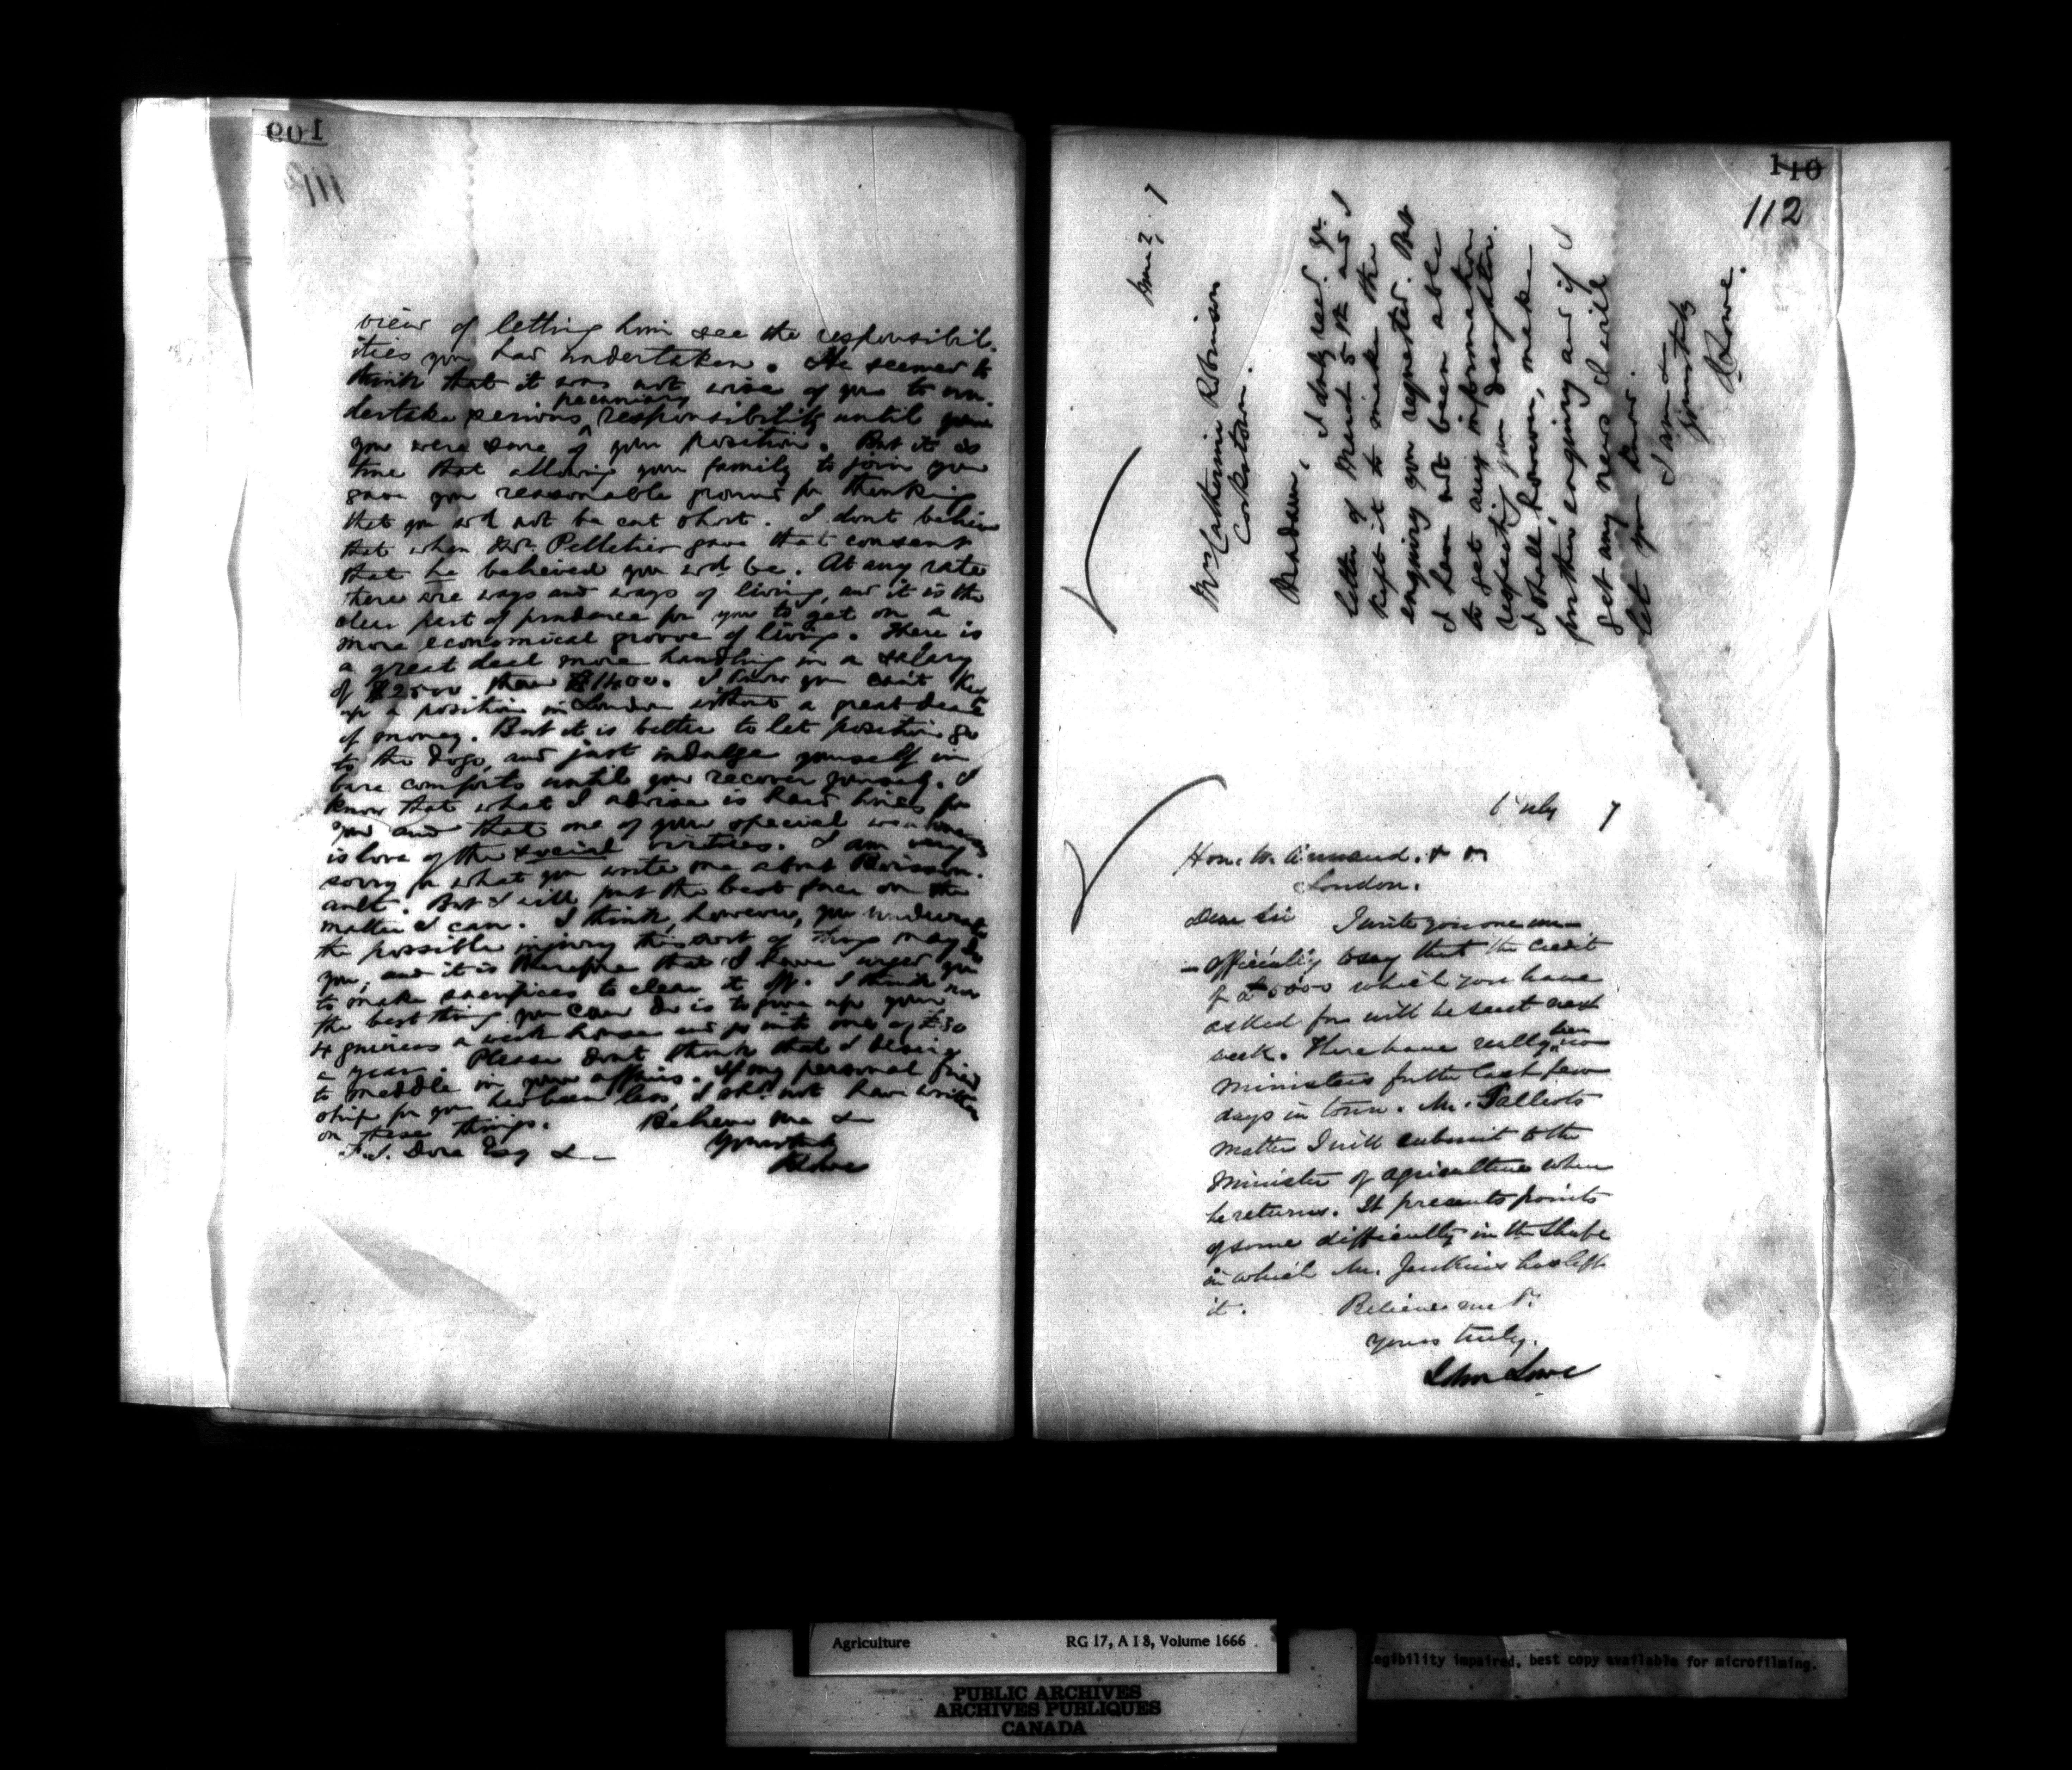 109
111
view of letting him see the responsibil-
ities you had undertaken. He seemed to
think that it was not wise of you to un-
dertake serious pecuniary responsibility until
you were sure of your position. But it is
true that allowing your family to join you
gave you reasonable ground for thinking
that you wd not be cut short. I dont believe
that when Mr. Pelletier gave that consent
that he believed you wd be. At any rate
there are ways and ways of living, and it is the
clear part of prudence for you to get on a
more economical groove of living. There is
a great deal more handling in a salary
of $2500 than I know you can't keep
up a position in London without a great deal
of money. But it is better to let position go
to the dogs, and just indulge yourself in
bare comforts until you recover yourself. I
know that what I advise is hard lines for
you and that one of your special weaknesses
is love of the social virtues. I am very
sorry for what you write me about
But I will put the best face on the
matter I can. I think, however, you underrate
the possible injury this sort of thing may do
you, and it is therefore that I have urged you
to make sacrifices to clear it off. I think now
the best thing you can do is to give up your
4 guineas a week house and go into one of £30
a year. Please dont think that I desire
to meddle in your affairs. If my personal friend
ship for you had been less, I shd not have written
on these things.
Believe me &
Yours truly
JLowe
F.J. Dore Esq &
110
112
June 27. 7
Mrs Catherine Robinson
Cookstown.
Madam, I duly recd. yr.
letter of March 5th and I
kept it to make the
enquiry you requested. But
I have not been able
to get any information
respecting your daughter.
I shall, however, make
further enquiry and if I
get any news I will
let you know.
I am &
Yours truly
JLowe.
6 July 7
Hon. W. Annand. & &
London.
Dear Sir I write you one un-
officially to say that the credit
of £5000 which you have
asked for will be sent next
week. There have really been no
Ministers for the last few
days in town. Mr.
matter I will submit to the
Minister of agriculture when
he returns. It presents points
of some difficulty in the shape
in which Mr. Jenkins has left
it. Believe me &.
Yours truly.
John Lowe
Agriculture RG 17, A I 8, Volume 1666
PUBLIC ARCHIVES
ARCHIVES PUBLIQUES
CANADA
egibility impaired, best copy available for microfilming.